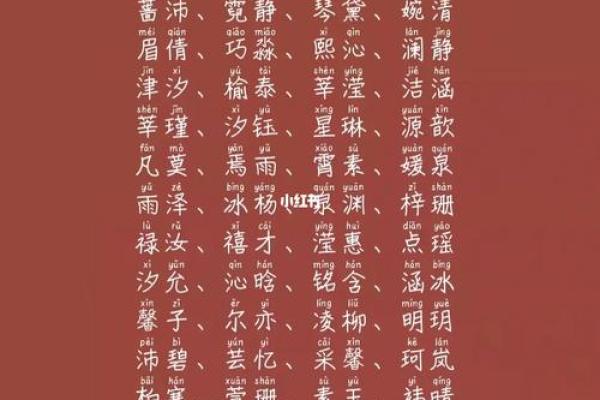 蔷沛、霓静、琴黛、婉清
méi qiàn qiǎo miǎo xī qìn lán jìng
眉倩、巧淼、熙沁、澜静
jīn xī yú tài shēn yíng jié hán
津汐、榆泰、莘滢、洁涵
shēn jǐn xī yù xīng lín yuán xīn
莘瑾、汐钰、星琳、源歆
fán mò yān yǔ xiāo sù yuán quán
凡莫、焉雨、霄素、媛泉
yǔ zé bīng yáng quán yuān zǐ shān
雨泽、冰杨、泉渊、梓珊
小红书
lù rǔ xǐ cái yíng huì diǎn yáo
禄汝、禧才、滢惠、点瑶
xī yǔn qìn hán míng hán hán bīng
汐允、沁晗、铭含、涵冰
xīn zǐ ěr yì líng liǔ míng yuè
馨子、尔亦、凌柳、明玥
pèi bì yún yì cǎi xīn kē lán
沛碧、芸忆、采馨、珂岚
bǎi hán xuān shān sù yù yī qíng
柏寒、萱珊、素玉、祎晴